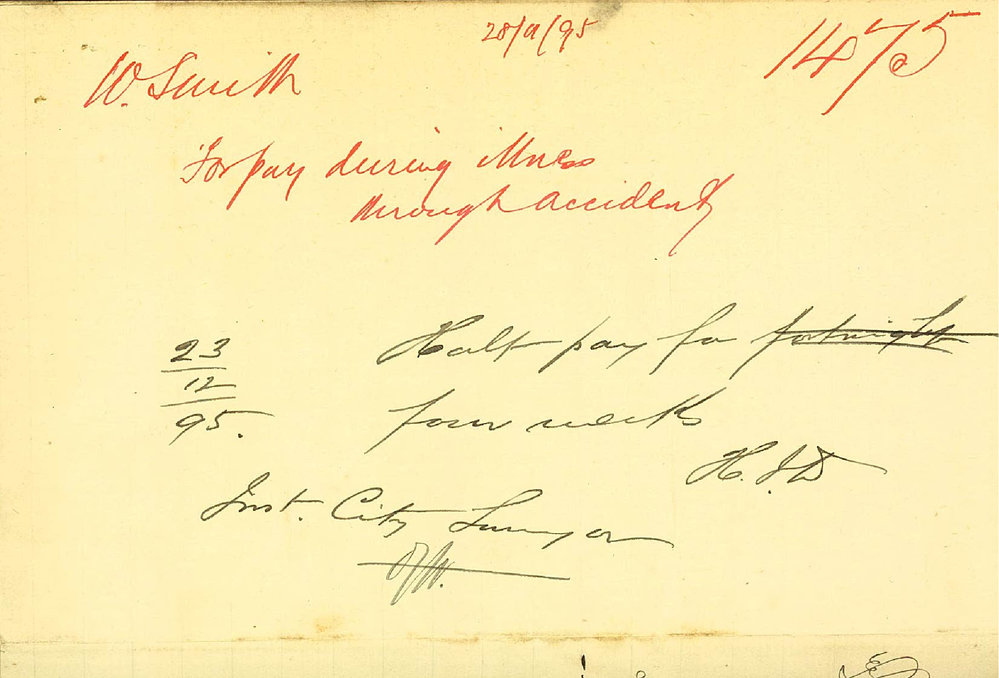 28/9/95
1475
W. Smith
For pay during illness
through accident
23
12
95.
Half pay for fortnight
four weeks
H.
Inst. City Surveyor